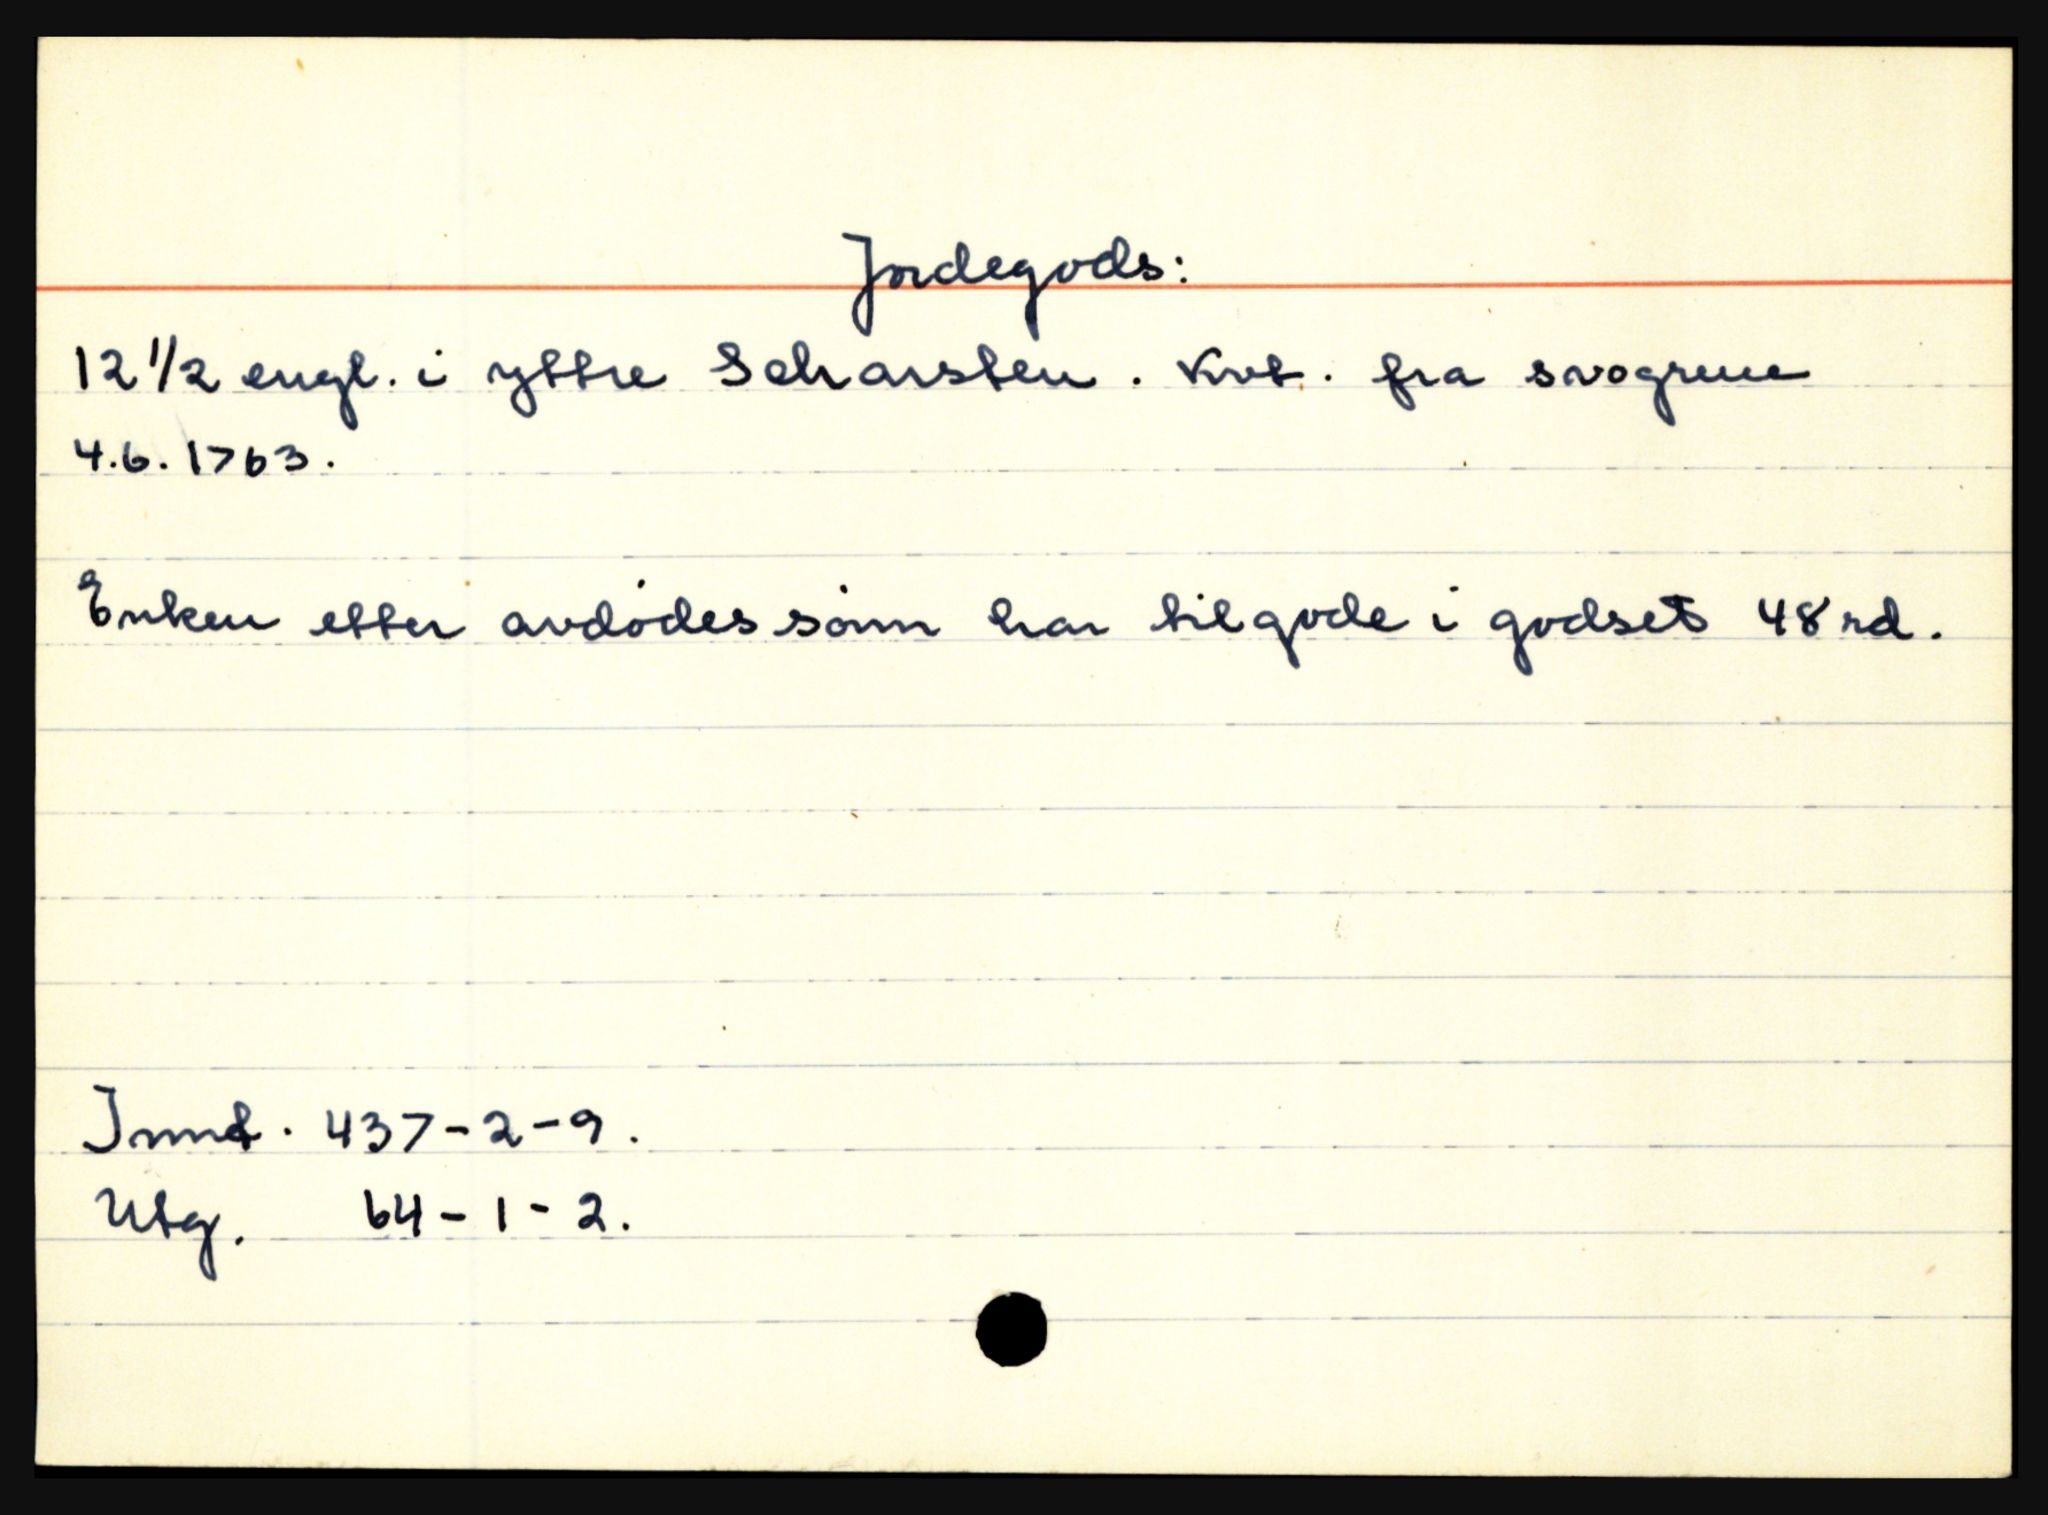 Jordegods:
12 1/2 engl. i yttre Scharsten. Kvt. fra svogrene
4.6.1763.
Enken etter avdødes sønn har tilgode i godset 48 rd.
Innt. 437-2-9.
Utg. 64-1-2.